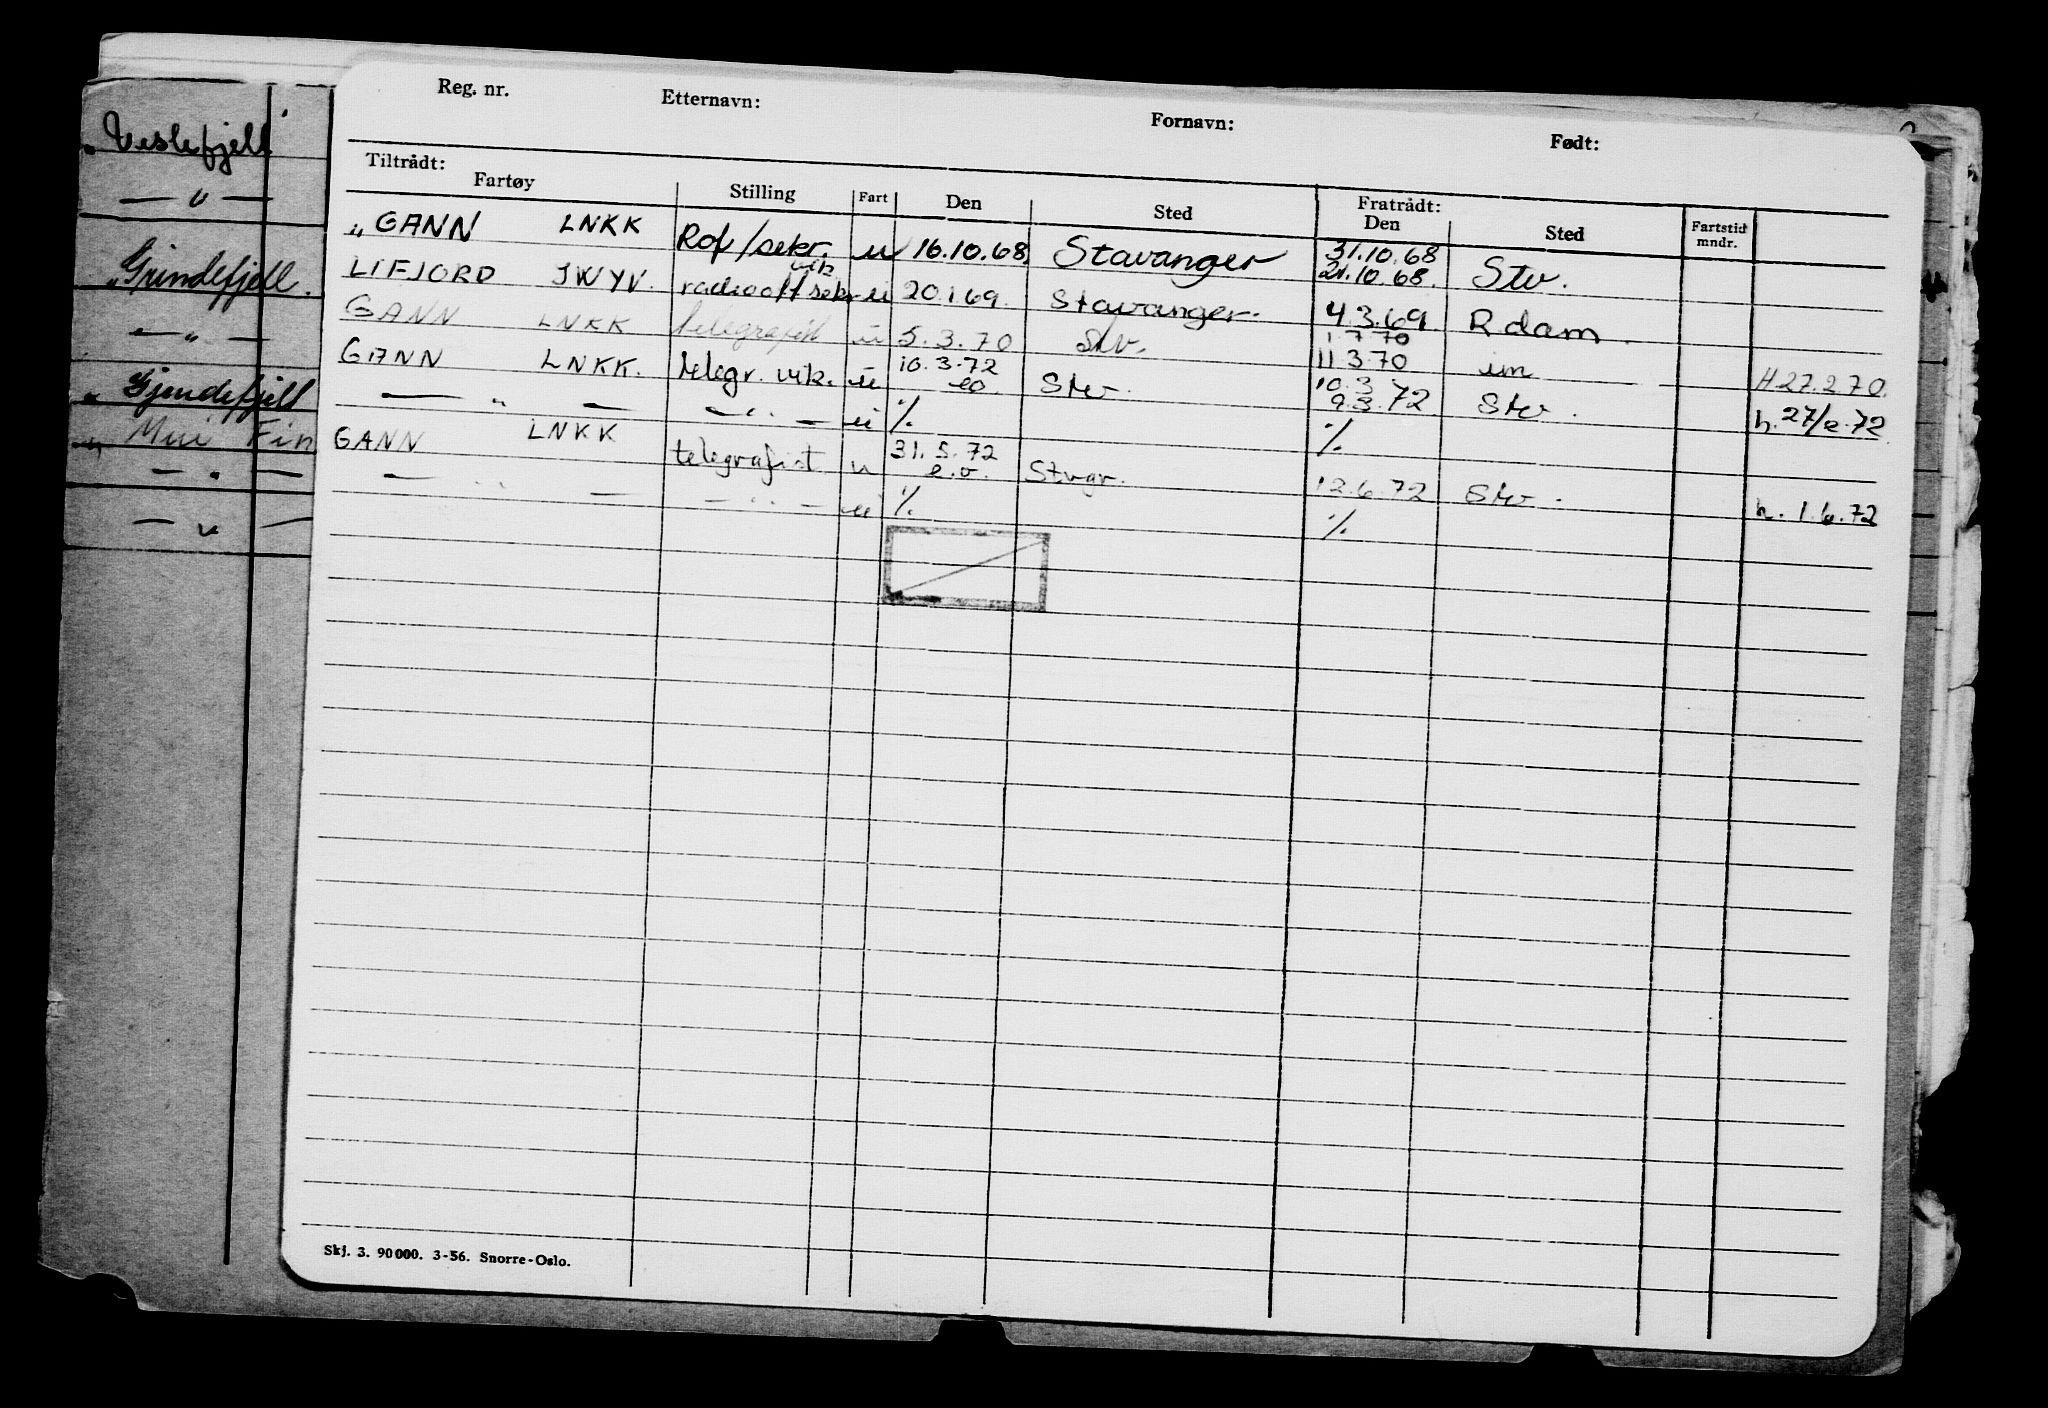 Reg. nr. Etternavn: Fornavn: Født:
Tiltrådt: Fratrådt:
Fartøy Stilling Fart Den Sted Den Sted Fartstid mndr.
„ GANN LNKK Rof/sekr. u 16.10.68. Stavanger 31.10.68 21.10.68. Stv.
LIFJORD JWYV. radiooff sekr vik. u 20.1.69. Stavanger. 4.3.69 R.dam.
GANN LNKK telegrafist u 5.3.70 Stv. 1.7.70 11.3.70 um H 27.2.70.
GANN LNKK. telegr. vik. u 10.3.72 eo Stv. 10.3 9.3.72 Stv. h. 27/2.72
— „ — — „ — u % %
GANN LNKK telegrafist u 31.5.72 e.o. Stvgr. 12.6.72 Stv. h. 1.6.72
— „ — — „ — u % %
Skj. 3. 90000. 3-56. Snorre-Oslo.
„ Veslefjell
— „ —
„ Grindefjell.
— „ —
„ Gjendefjell
„ Fin
— „ —
— „ —